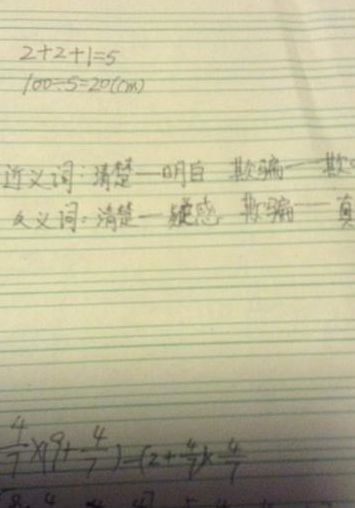 2+2+1=5
100÷5=20(cm)
近义词:清楚—明白 欺骗—欺
反义词:清楚—疑惑 欺骗—真
4/7×(9+4/7)-(2+4/7)×4/7